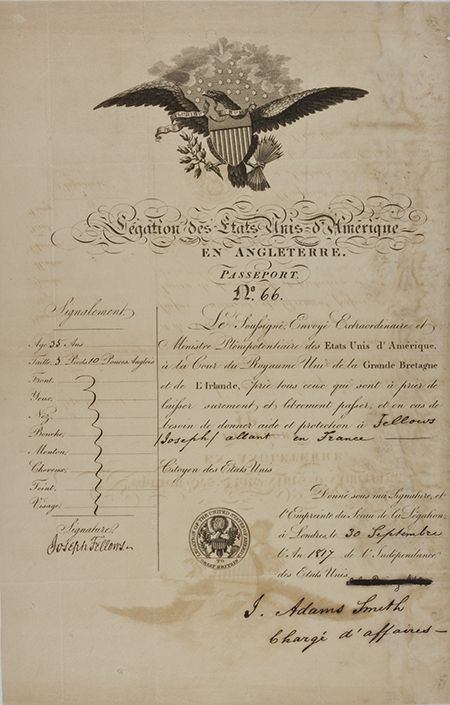 Légation des Etats Unis d'Amérique
EN ANGLETERRE.
PASSEPORT.
N.º 66.
Signalement
Age 35 Ans
Taille 5 Pieds 10 Pouces Anglois
Front,
Yeux,
Nez,
Bouche,
Menton,
Cheveux,
Teint,
Visage,
Signature
Joseph Fellows
Le Soussigné, Envoyé Extraordinaire et
Ministre Plenipotentiaire des Etats Unis d'Amérique,
à la Cour du Royaume Uni de la Grande Bretagne
et de L'Irlande, prie tous ceux qui sont à prier de
laisser surement et librement passer, et en cas de
besoin de donner aide et protection à Fellows
(Joseph) allant en France
Citoyen des Etats Unis
Donné sous ma Signature, et
l'Empreinte du Sceau de la Légation,
à Londres, le 30 Septembre
L'An 1817 de l'Indépendance
des Etats Unis
J. Adams Smith
Chargé d'affaires